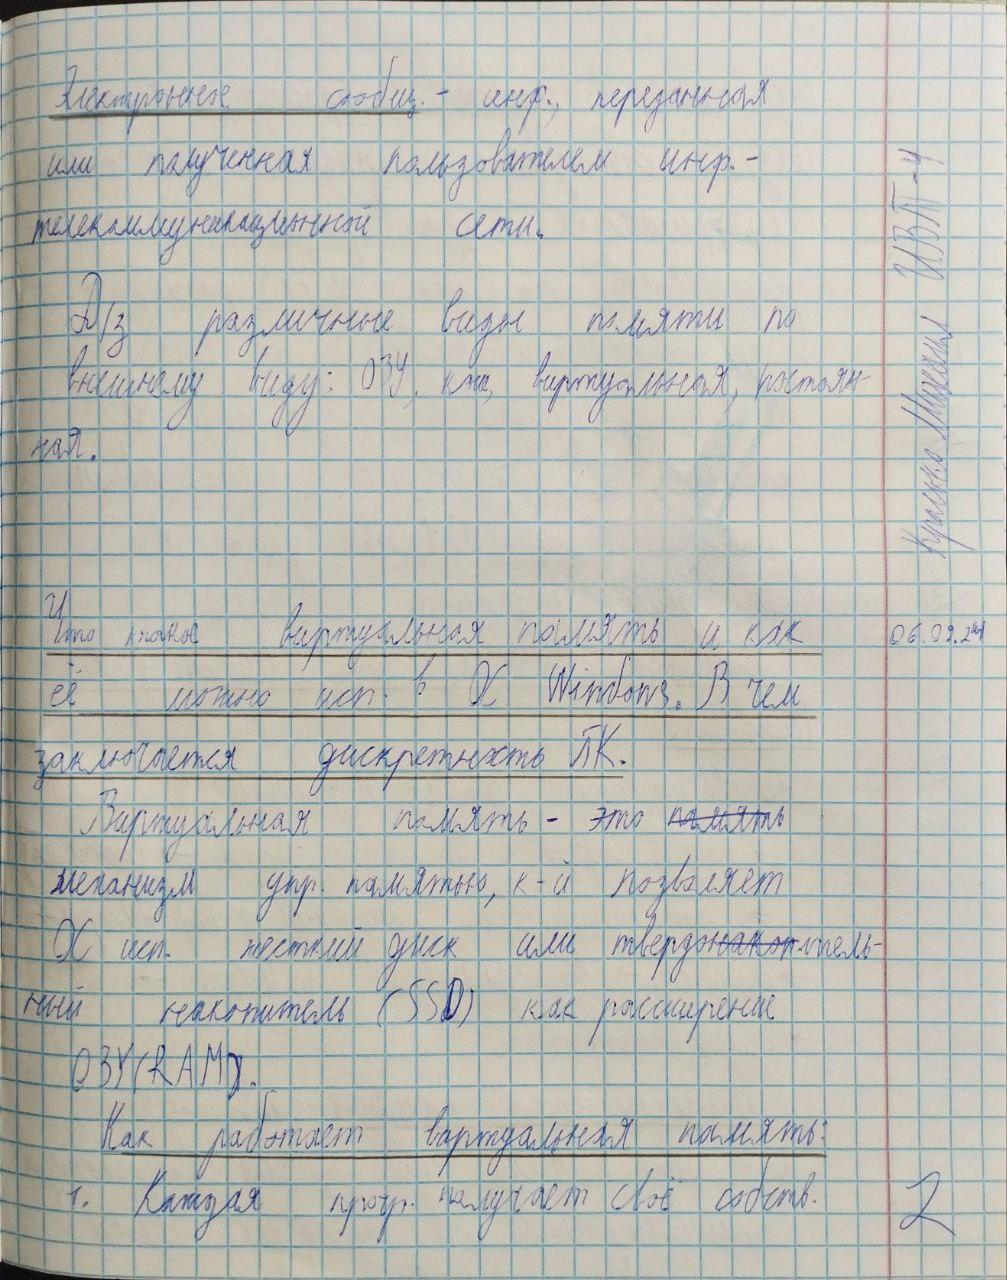 Электронное сообщ. - инф., переданная
или полученная пользователем инф.-
телекоммуникационной сети.
Д/з различные виды памяти по
внешнему виду: ОЗУ, кэш, виртуальная, постоян-
ная.
Что такое виртуальная память и как
её можно исп. в ОС Windows. В чем
заключается дискретность ПК.
Виртуальная память - это память
механизм упр. памятью, к-й позволяет
ОС исп. жесткий диск или твердо
ный накопитель (SSD) как расширение
ОЗУ(RAM).
Как работает виртуальная память:
1. Каждая прогр. получает своё собств.
ИВТ-4
Михаил
06.09.24
2